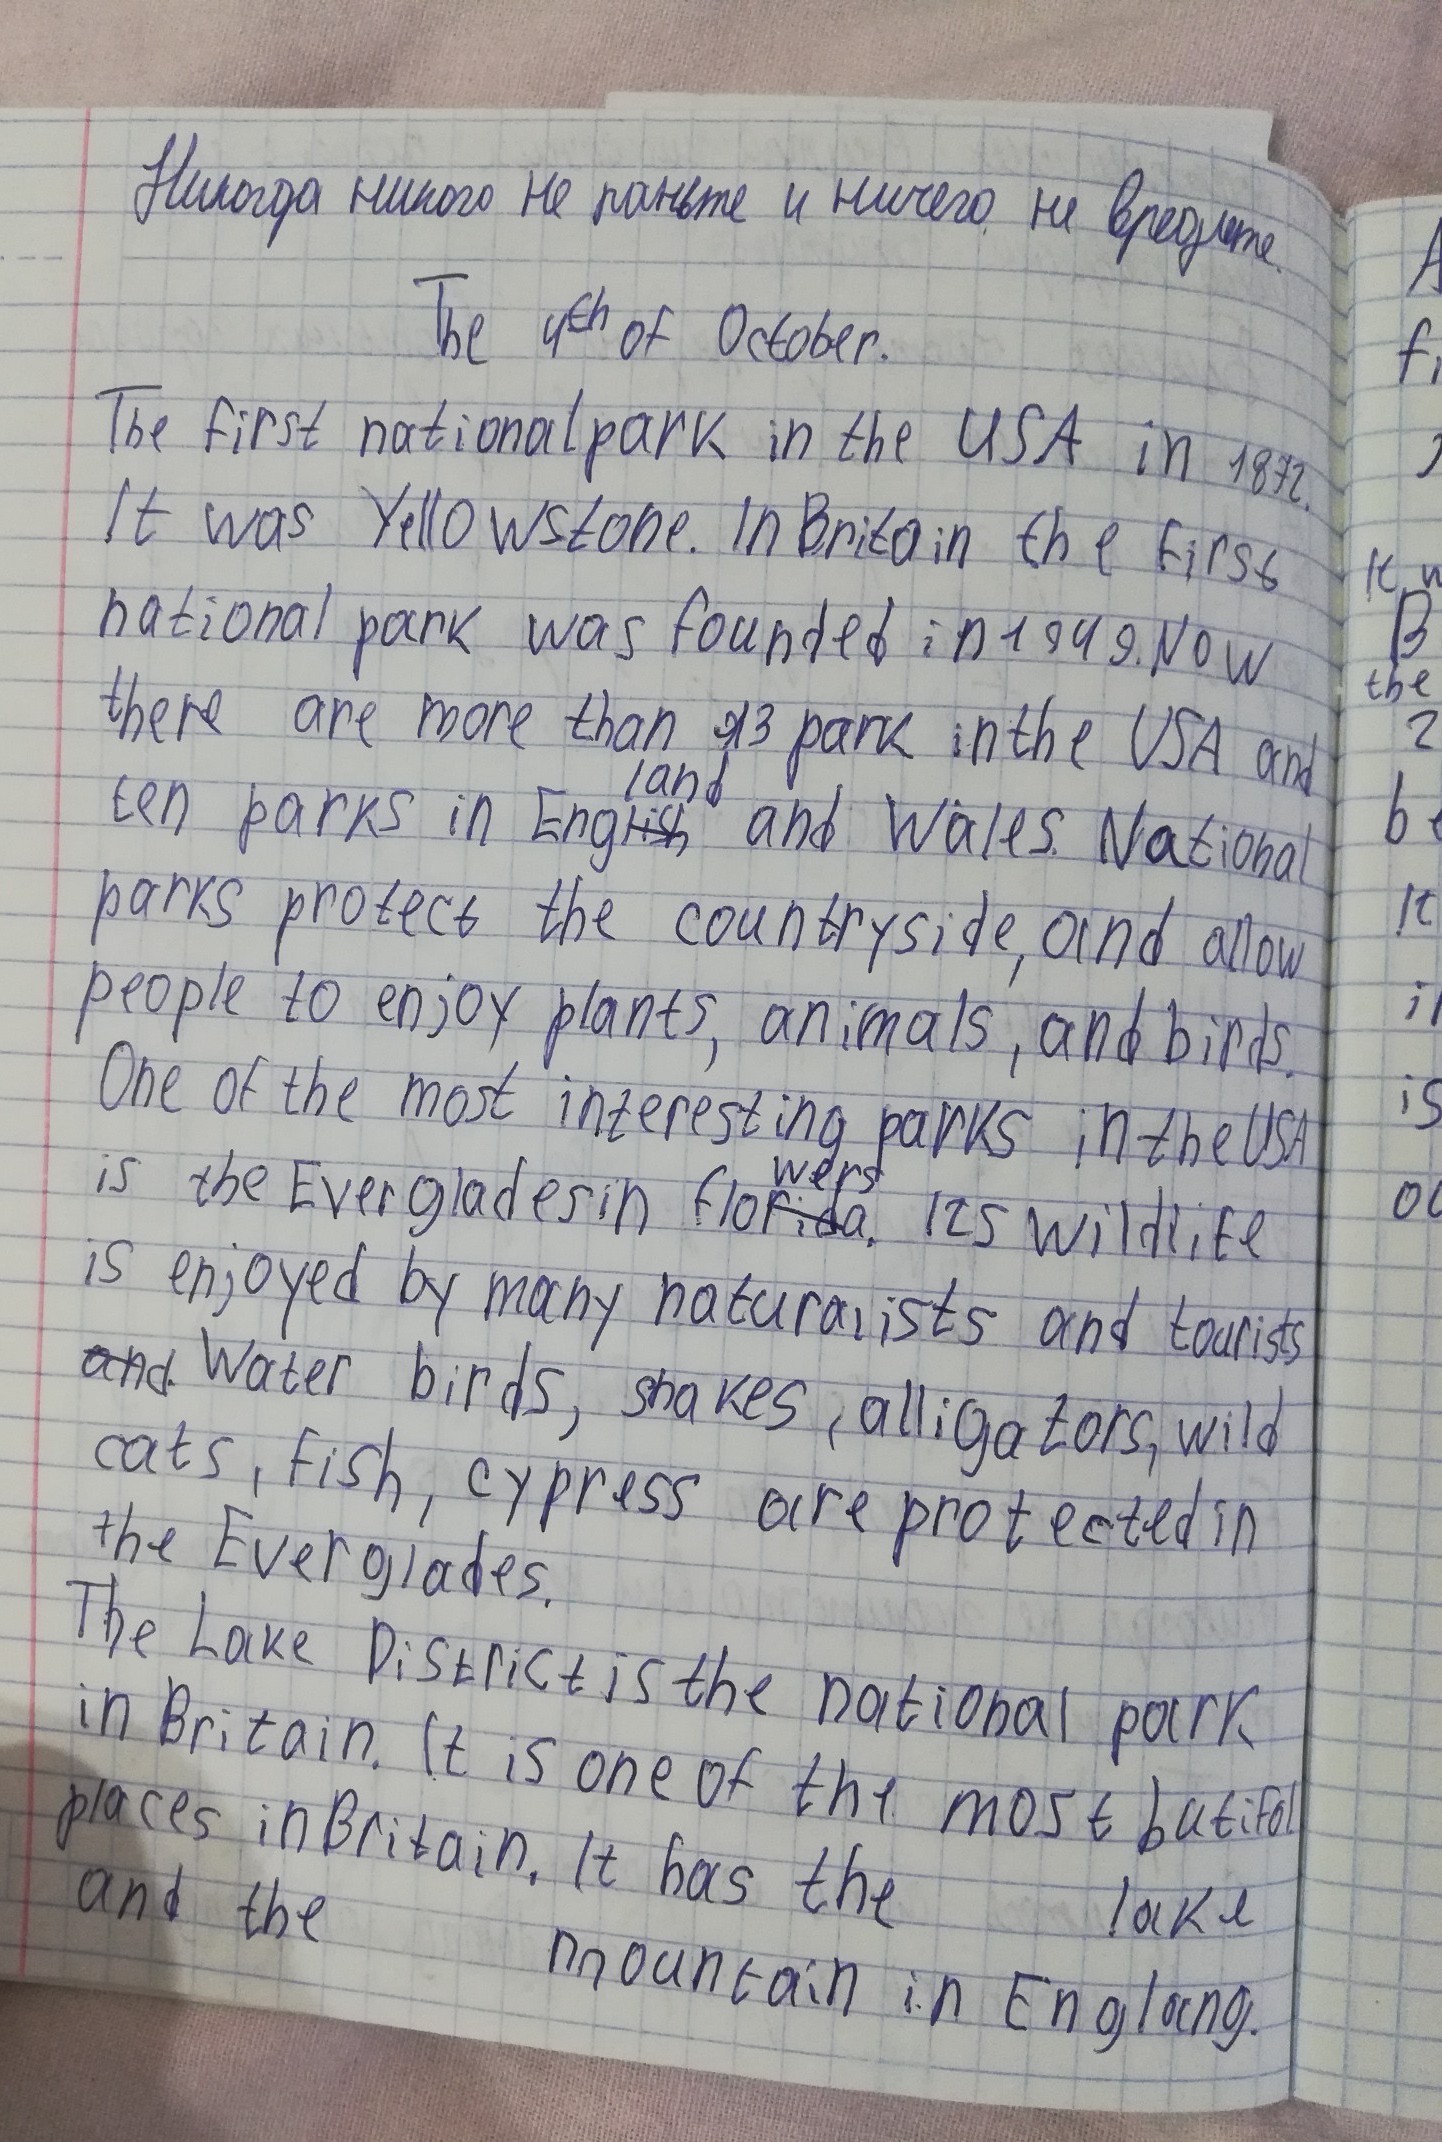 Никогда никого не раньте и ничего не вредите.
The 4th of October.
The first national park in the USA in 1872.
It was Yellowstone. In Britain the first
national park was founded in 1949. Now
there are more than 13 park in the USA and
land
ten parks in English and Wales. National
parks protect the countryside, and allow
people to enjoy plants, animals, and birds.
One of the most interesting parks in the USA
wers
is the Everglades in florida. Its wildlife
is enjoyed by many naturalists and tourists
and. Water birds, snakes, alligators, wild
cats, fish, cypress are protected in
the Everglades.
The Lake District is the national park
in Britain. It is one of the most butifol
places in Britain. It has the lake
and the mountain in Englang.
A
fi
It w
B
the
2
be
It
in
is